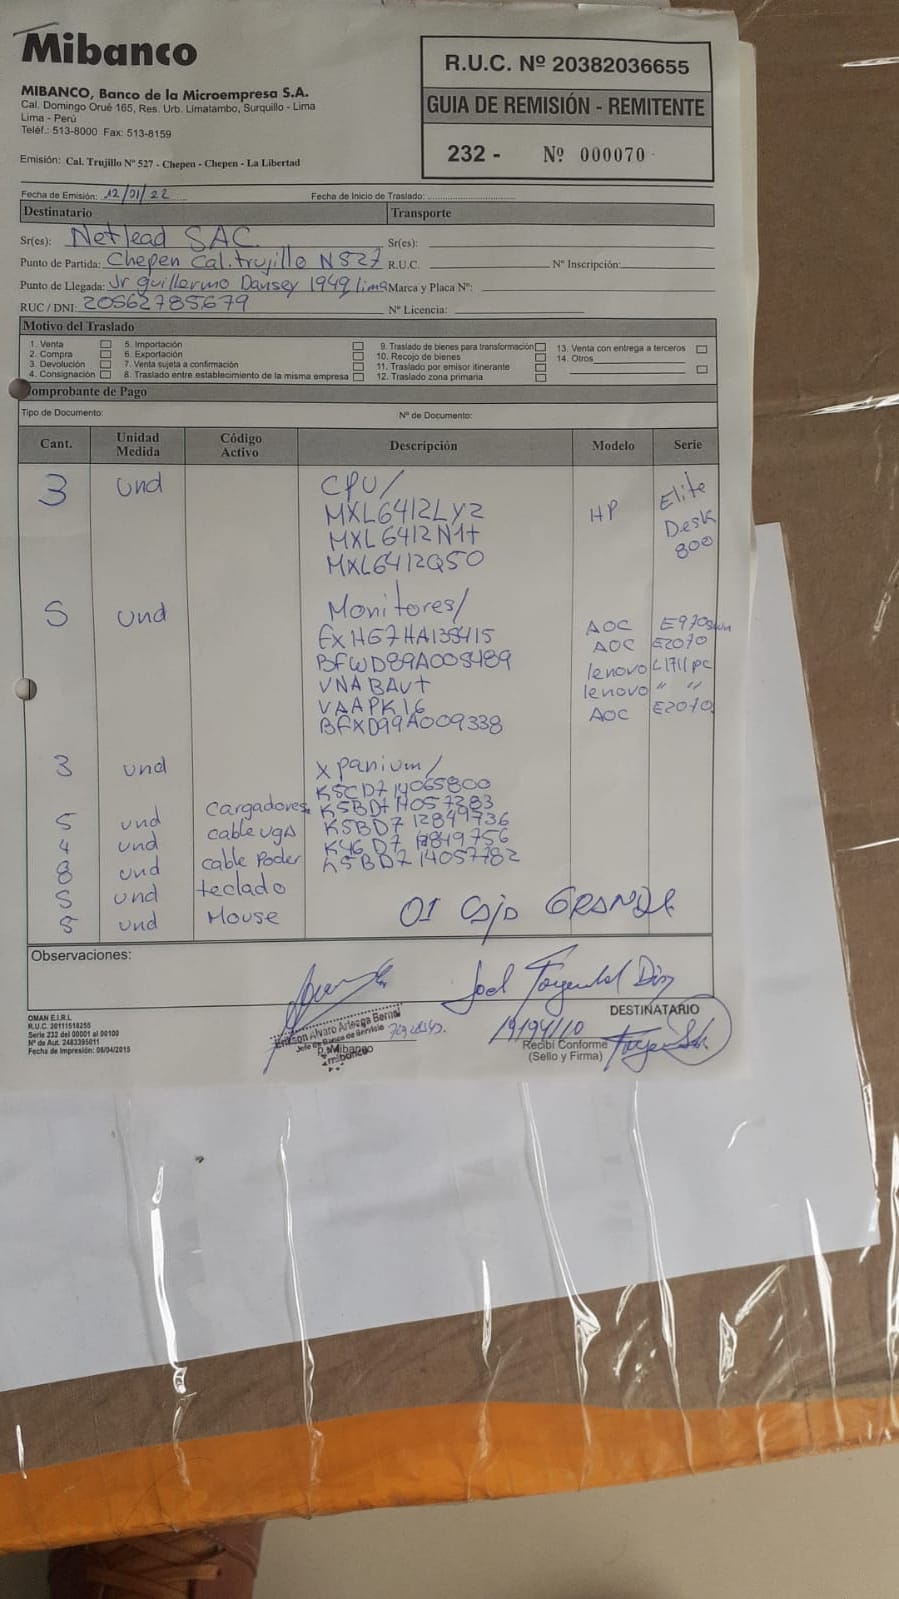 Mibanco
MIBANCO, Banco de la Microempresa S.A.
Cal. Domingo Orué 165, Res. Urb. Limatambo, Surquillo - Lima
Lima - Perú
Teléf.: 513-8000 Fax: 513-8159
Emisión: Cal. Trujillo Nº 527 - Chepen - Chepen - La Libertad
R.U.C. Nº 20382036655
GUIA DE REMISIÓN - REMITENTE
232 - Nº 000070
Fecha de Emisión: 12/01/22 Fecha de Inicio de Traslado:
Destinatario Transporte
Sr(es): Netlead SAC. Sr(es):
Punto de Partida: Chepen Cal. trujillo N 527 R.U.C. Nº Inscripción:
Punto de Llegada: Jr guillermo Dansey 1949 lima Marca y Placa Nº:
RUC / DNI: 20562785679 Nº Licencia:
Motivo del Traslado
1. Venta 5. Importación 9. Traslado de bienes para transformación 13. Venta con entrega a terceros
2. Compra 6. Exportación 10. Recojo de bienes 14. Otros
3. Devolución 7. Venta sujeta a confirmación 11. Traslado por emisor itinerante
4. Consignación 8. Traslado entre establecimiento de la misma empresa 12. Traslado zona primaria
Comprobante de Pago
Tipo de Documento: Nº de Documento:
Cant. Unidad Medida Código Activo Descripción Modelo Serie
3 und CPU/ HP Elite Desk 800
MXL6412LYZ
MXL6412N1t
MXL6412Q50
5 und Monitores/
ExHG7HA135415 AOC
BFWD89A005489 AOC E2070
VNABAVt lenovo L1711pc
VAAPK16 lenovo " "
BFXD99A009338 AOC E2070
3 und xpanium/
K5CD714065800
Cargadores K5BD714057283
5 und cable vga K5BD7 12849736
4 und
8 und cable Poder K5BD7 14057782
5 und teclado
5 und Mouse
01 Caja GRANDE
Observaciones:
Joel
DESTINATARIO
Recibí Conforme
(Sello y Firma)
Alvaro Arteaga Bernal
p. Mibanco
mibanco
OMAN E.I.R.L
R.U.C. 20111518255
Serie 232 del 00001 al 00100
Nº de Aut. 2483395011
Fecha de Impresión: 08/04/2015